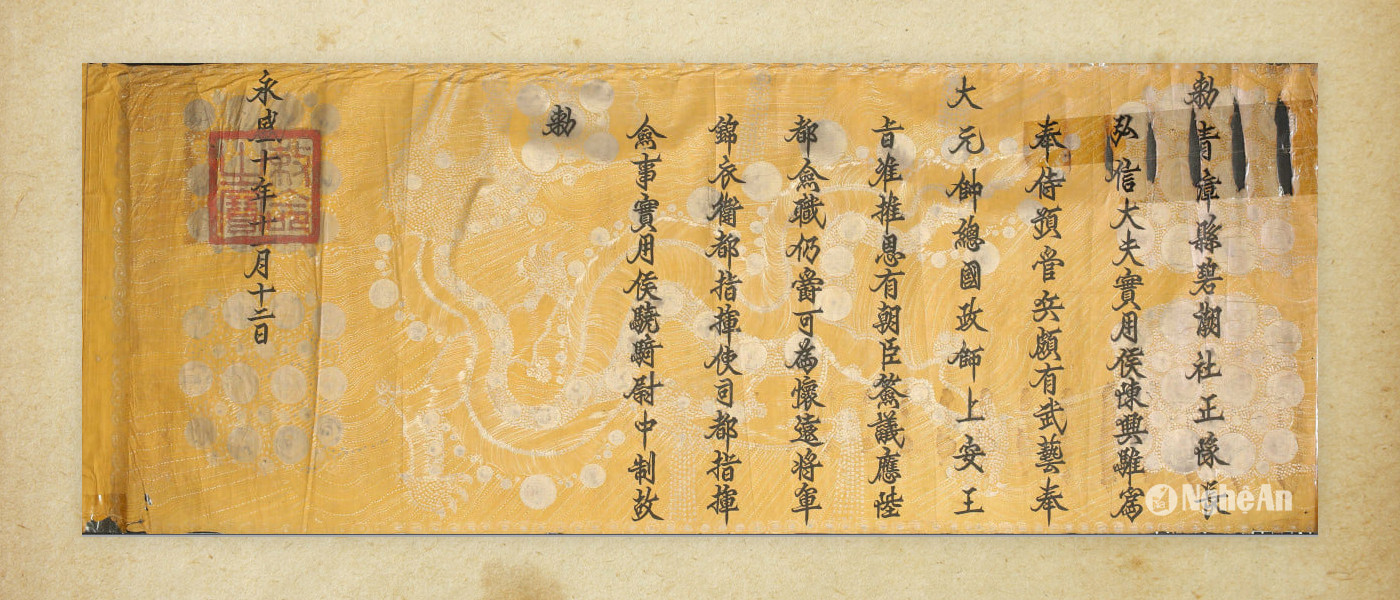 勅青漳縣碧潮社正隊長
弘信大夫實用侯陳興雖爲
奉侍預管兵頗有武藝奉
大元帥總國政師上安王
旨准推恩有朝臣僉議應陞
都僉職仍爵可為懷遠將軍
錦衣衛都指揮使司都指揮
僉事實用侯驍騎尉中制故
勅
永盛十年十一月十二日
敕命之寶
NghệAn